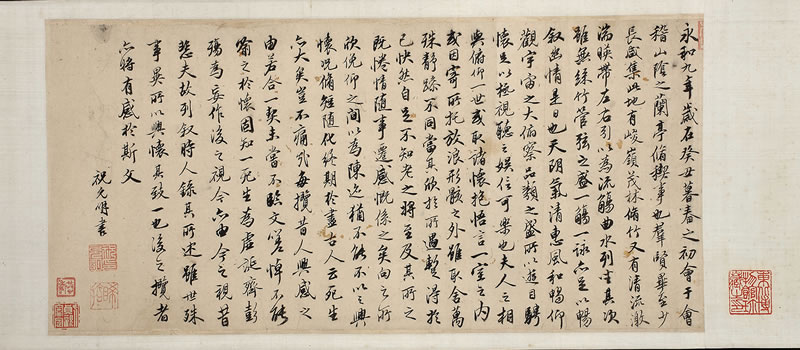 永和九年歲在癸丑暮春之初會于會
稽山陰之蘭亭脩禊事也羣賢畢至少
長咸集此地有峻嶺茂林脩竹又有清流激
湍暎帶左右引以為流觴曲水列坐其次
雖無絲竹管弦之盛一觴一詠亦足以暢
叙幽情是日也天朗氣清惠風和暢仰
觀宇宙之大俯察品類之盛所以遊目騁
懷足以極視聽之娛信可樂也夫人之相
與俯仰一世或取諸懷抱悟言一室之内
或因寄所托放浪形骸之外雖取舍萬
殊靜躁不同當其欣於所遇蹔得於
己快然自足不知老之將至及其所之
既惓情隨事遷感慨係之矣向之所
欣俛仰之間以為陳迹猶不能不以之興
懷況脩短隨化終期於盡古人云死生
亦大矣豈不痛哉每攬昔人興感之
由若合一契未嘗不臨文嗟悼不能
喻之於懷固知一死生為虛誕齊彭
殤為妄作後之視今亦由今之視昔
悲夫故列叙時人錄其所述雖世殊
事異所以興懷其致一也後之攬者
亦將有感於斯文
祝允明書